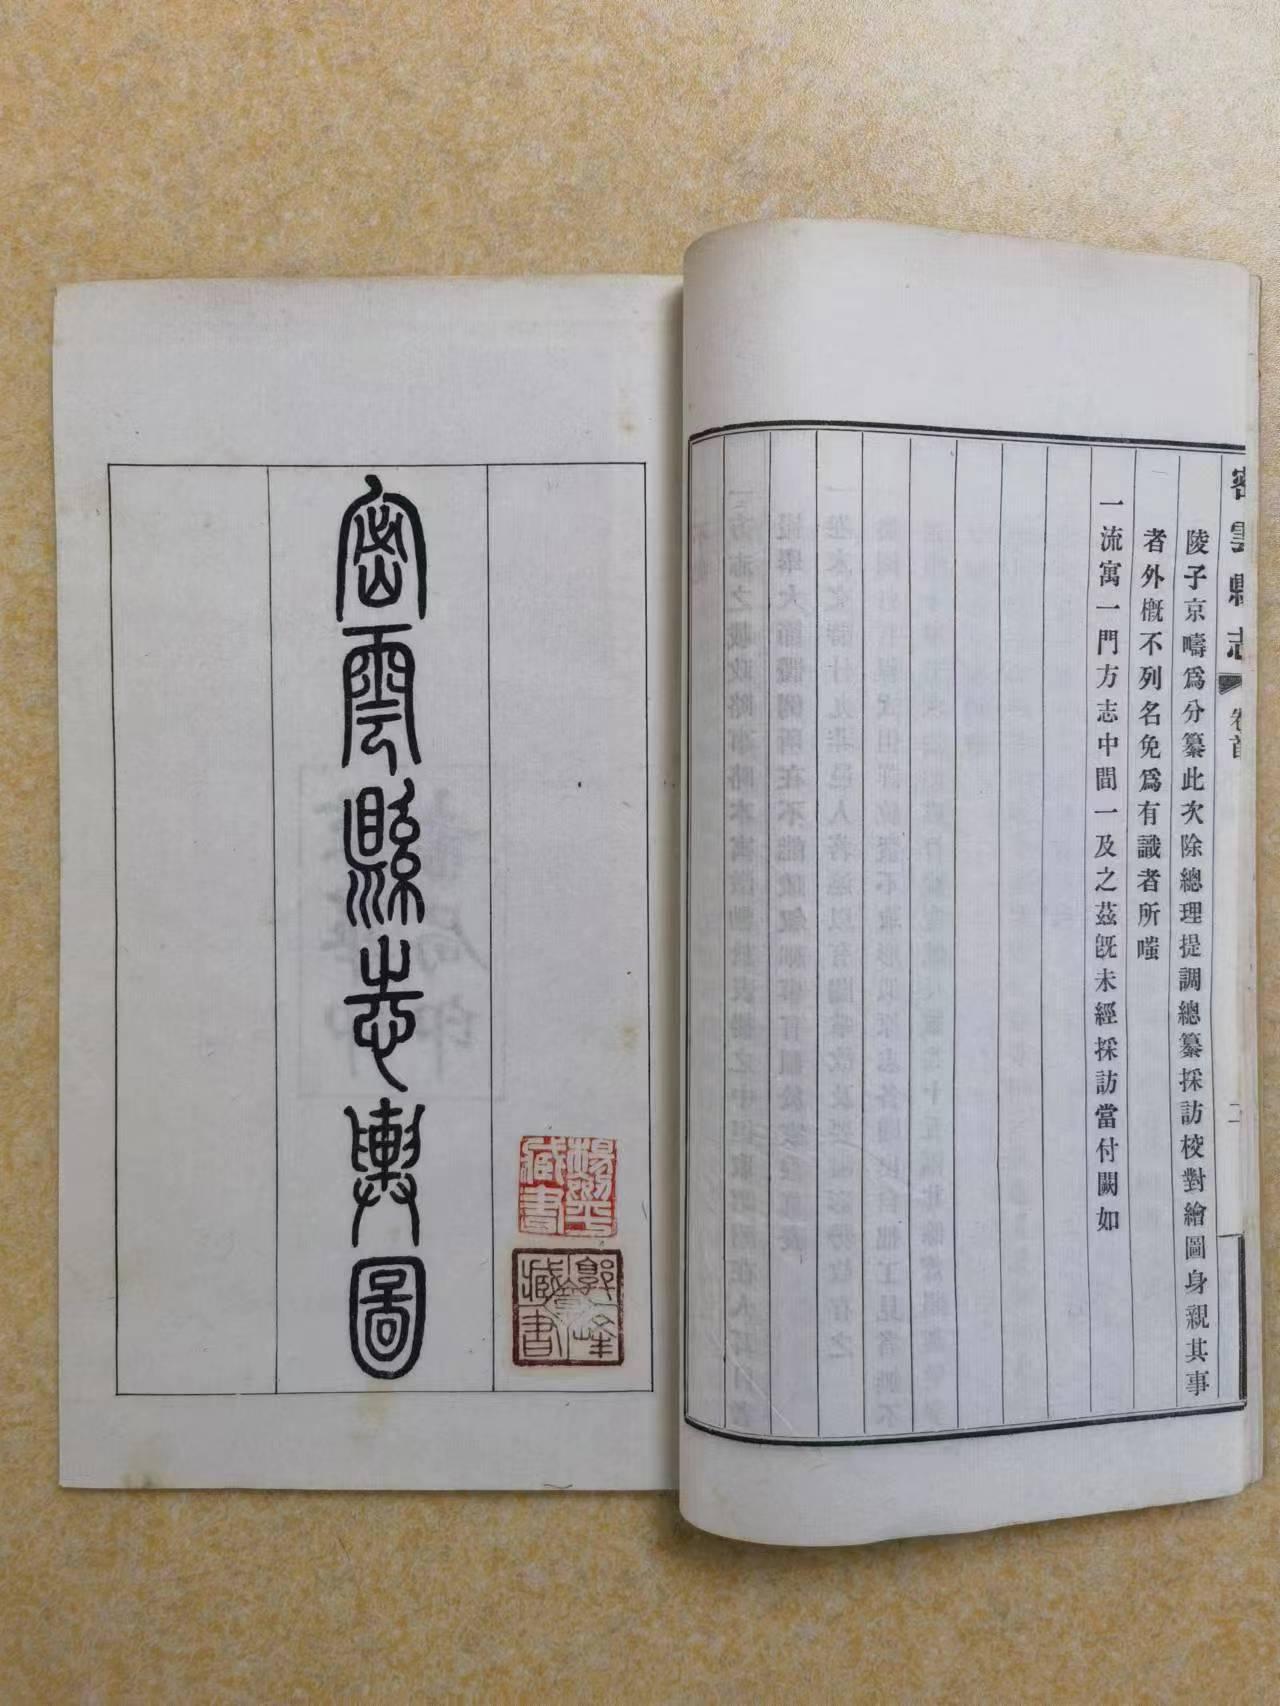 密雲縣志 卷首
陵子京疇爲分纂此次除總理提調總纂採訪校對繪圖身親其事
者外概不列名免爲有識者所嗤
一流寓一門方志中間一及之茲旣未經採訪當付闕如
密雲縣志輿圖
藏書
藏書